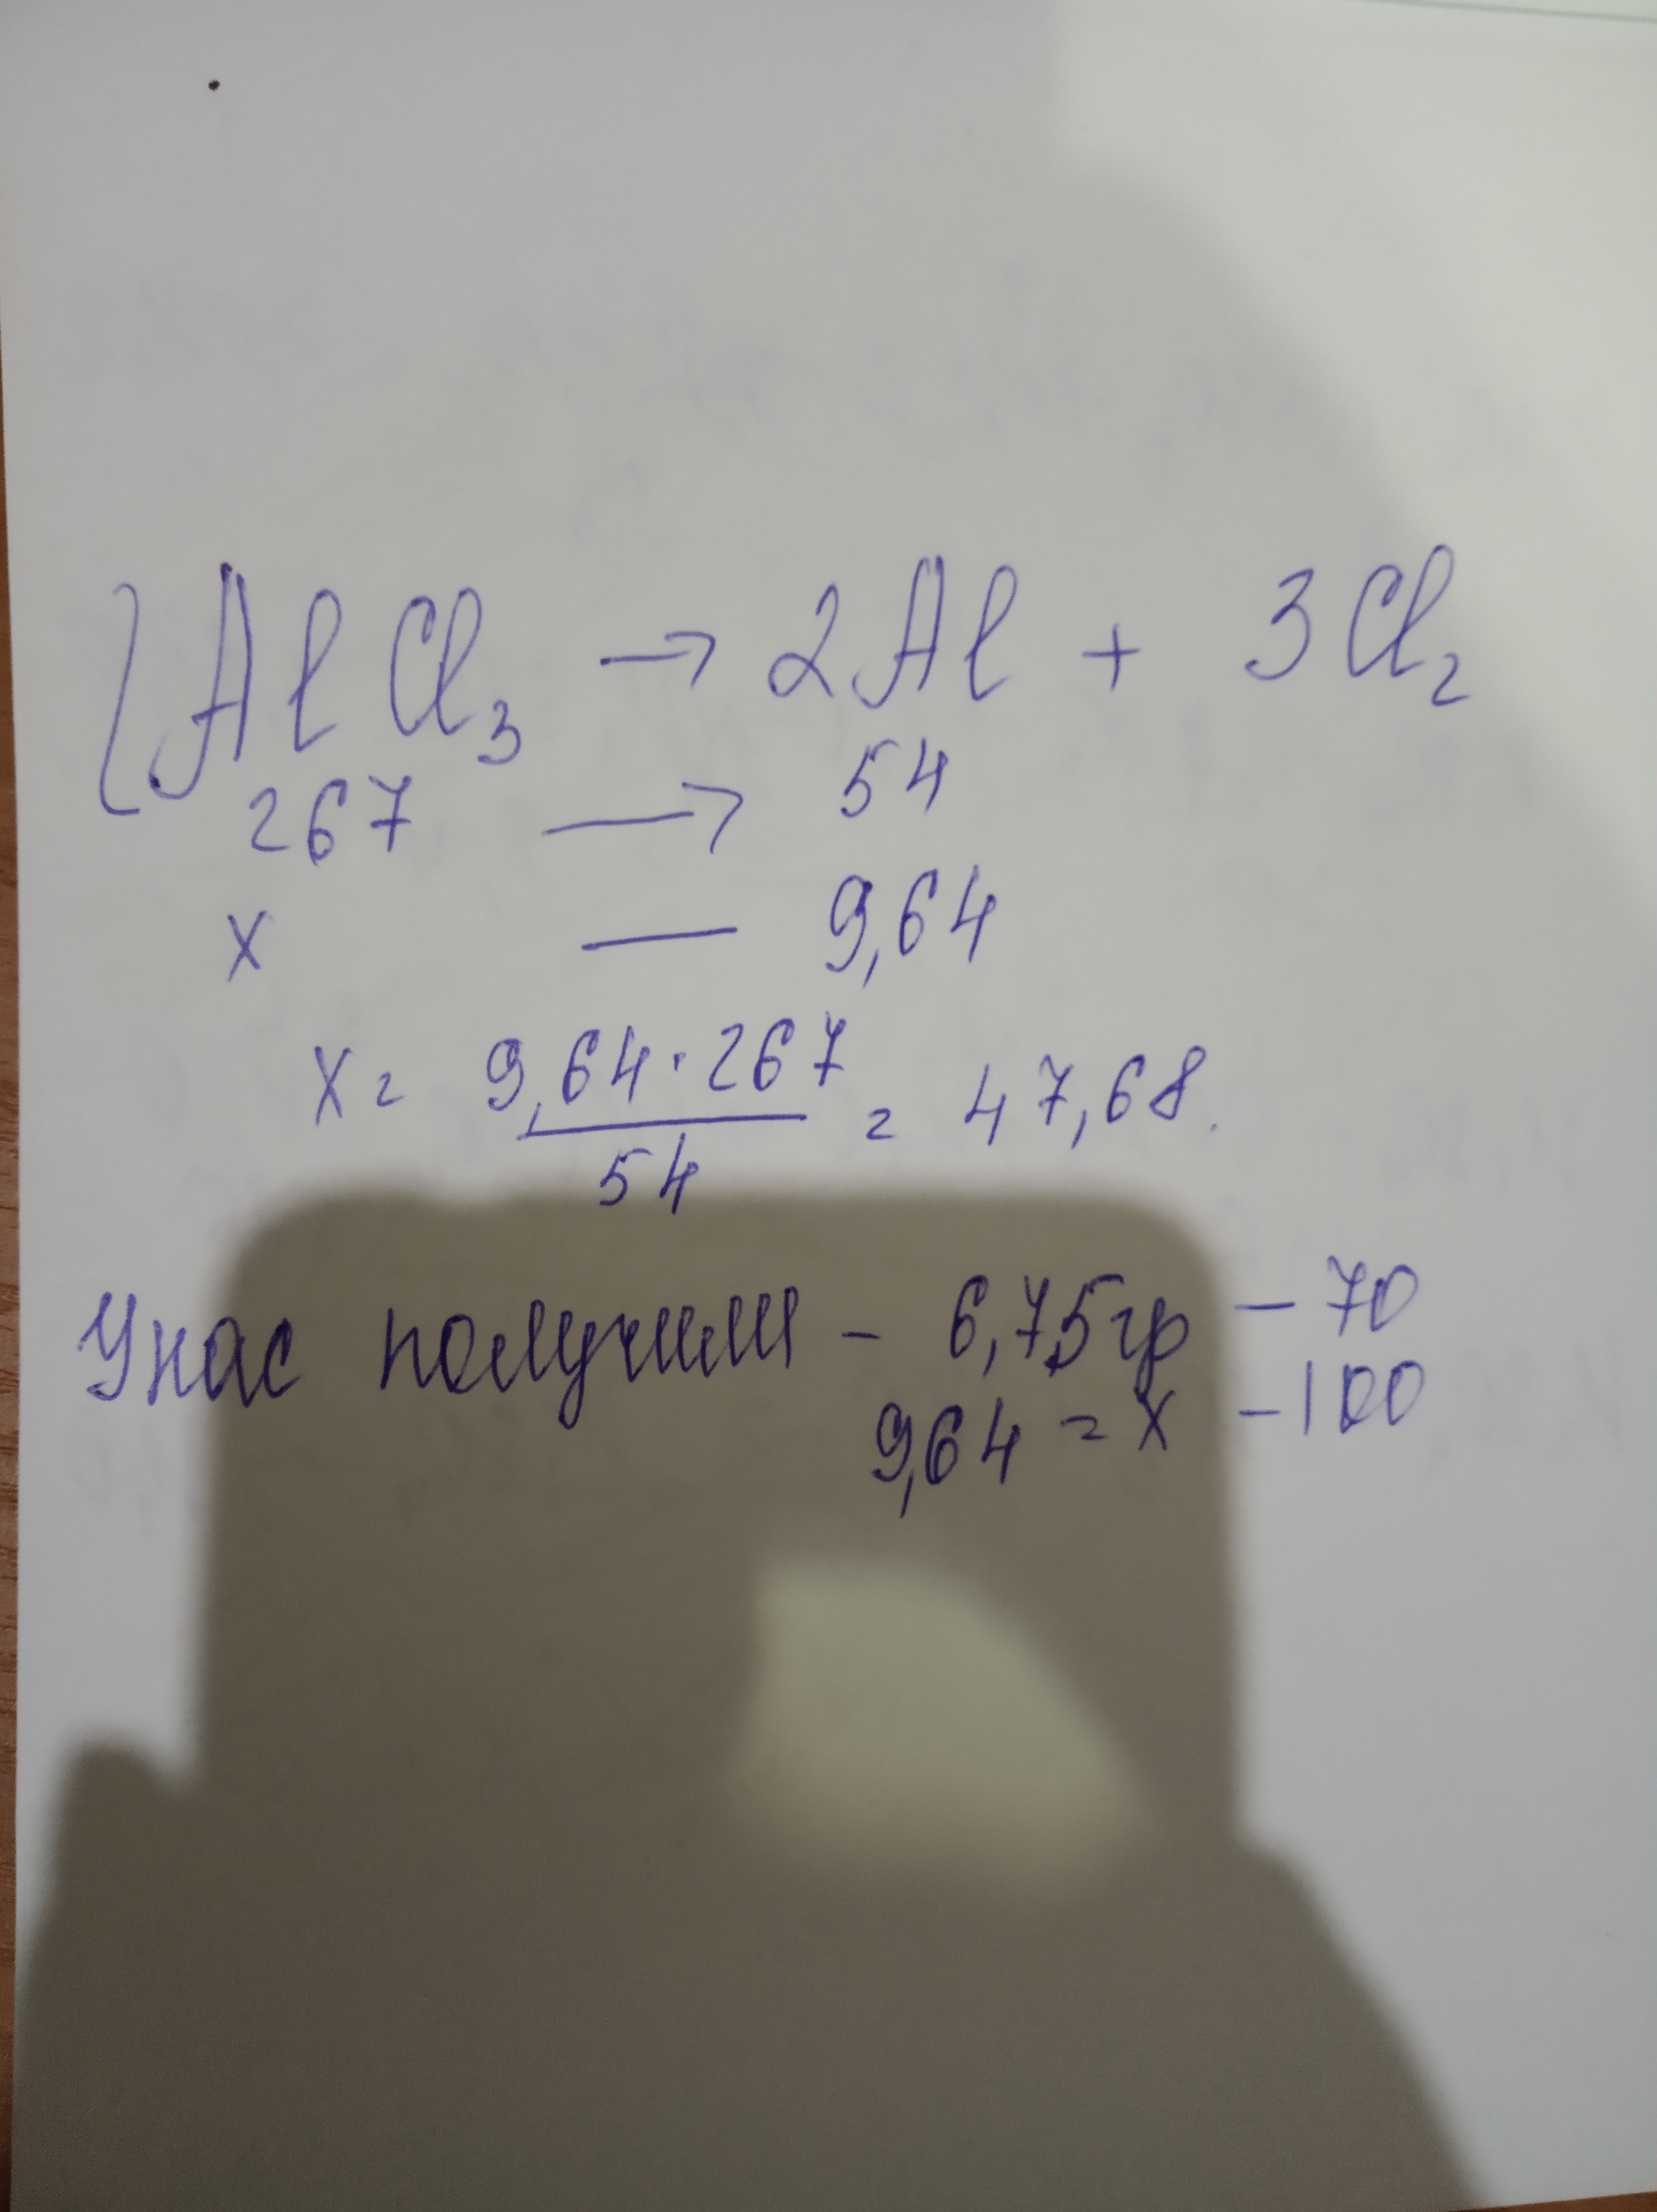 2AlCl₃ → 2Al + 3Cl₂
267 → 54
x — 9,64
x = 9,64·267 / 54 = 47,68.
У нас получили - 6,75гр — 70
9,64 = x — 100